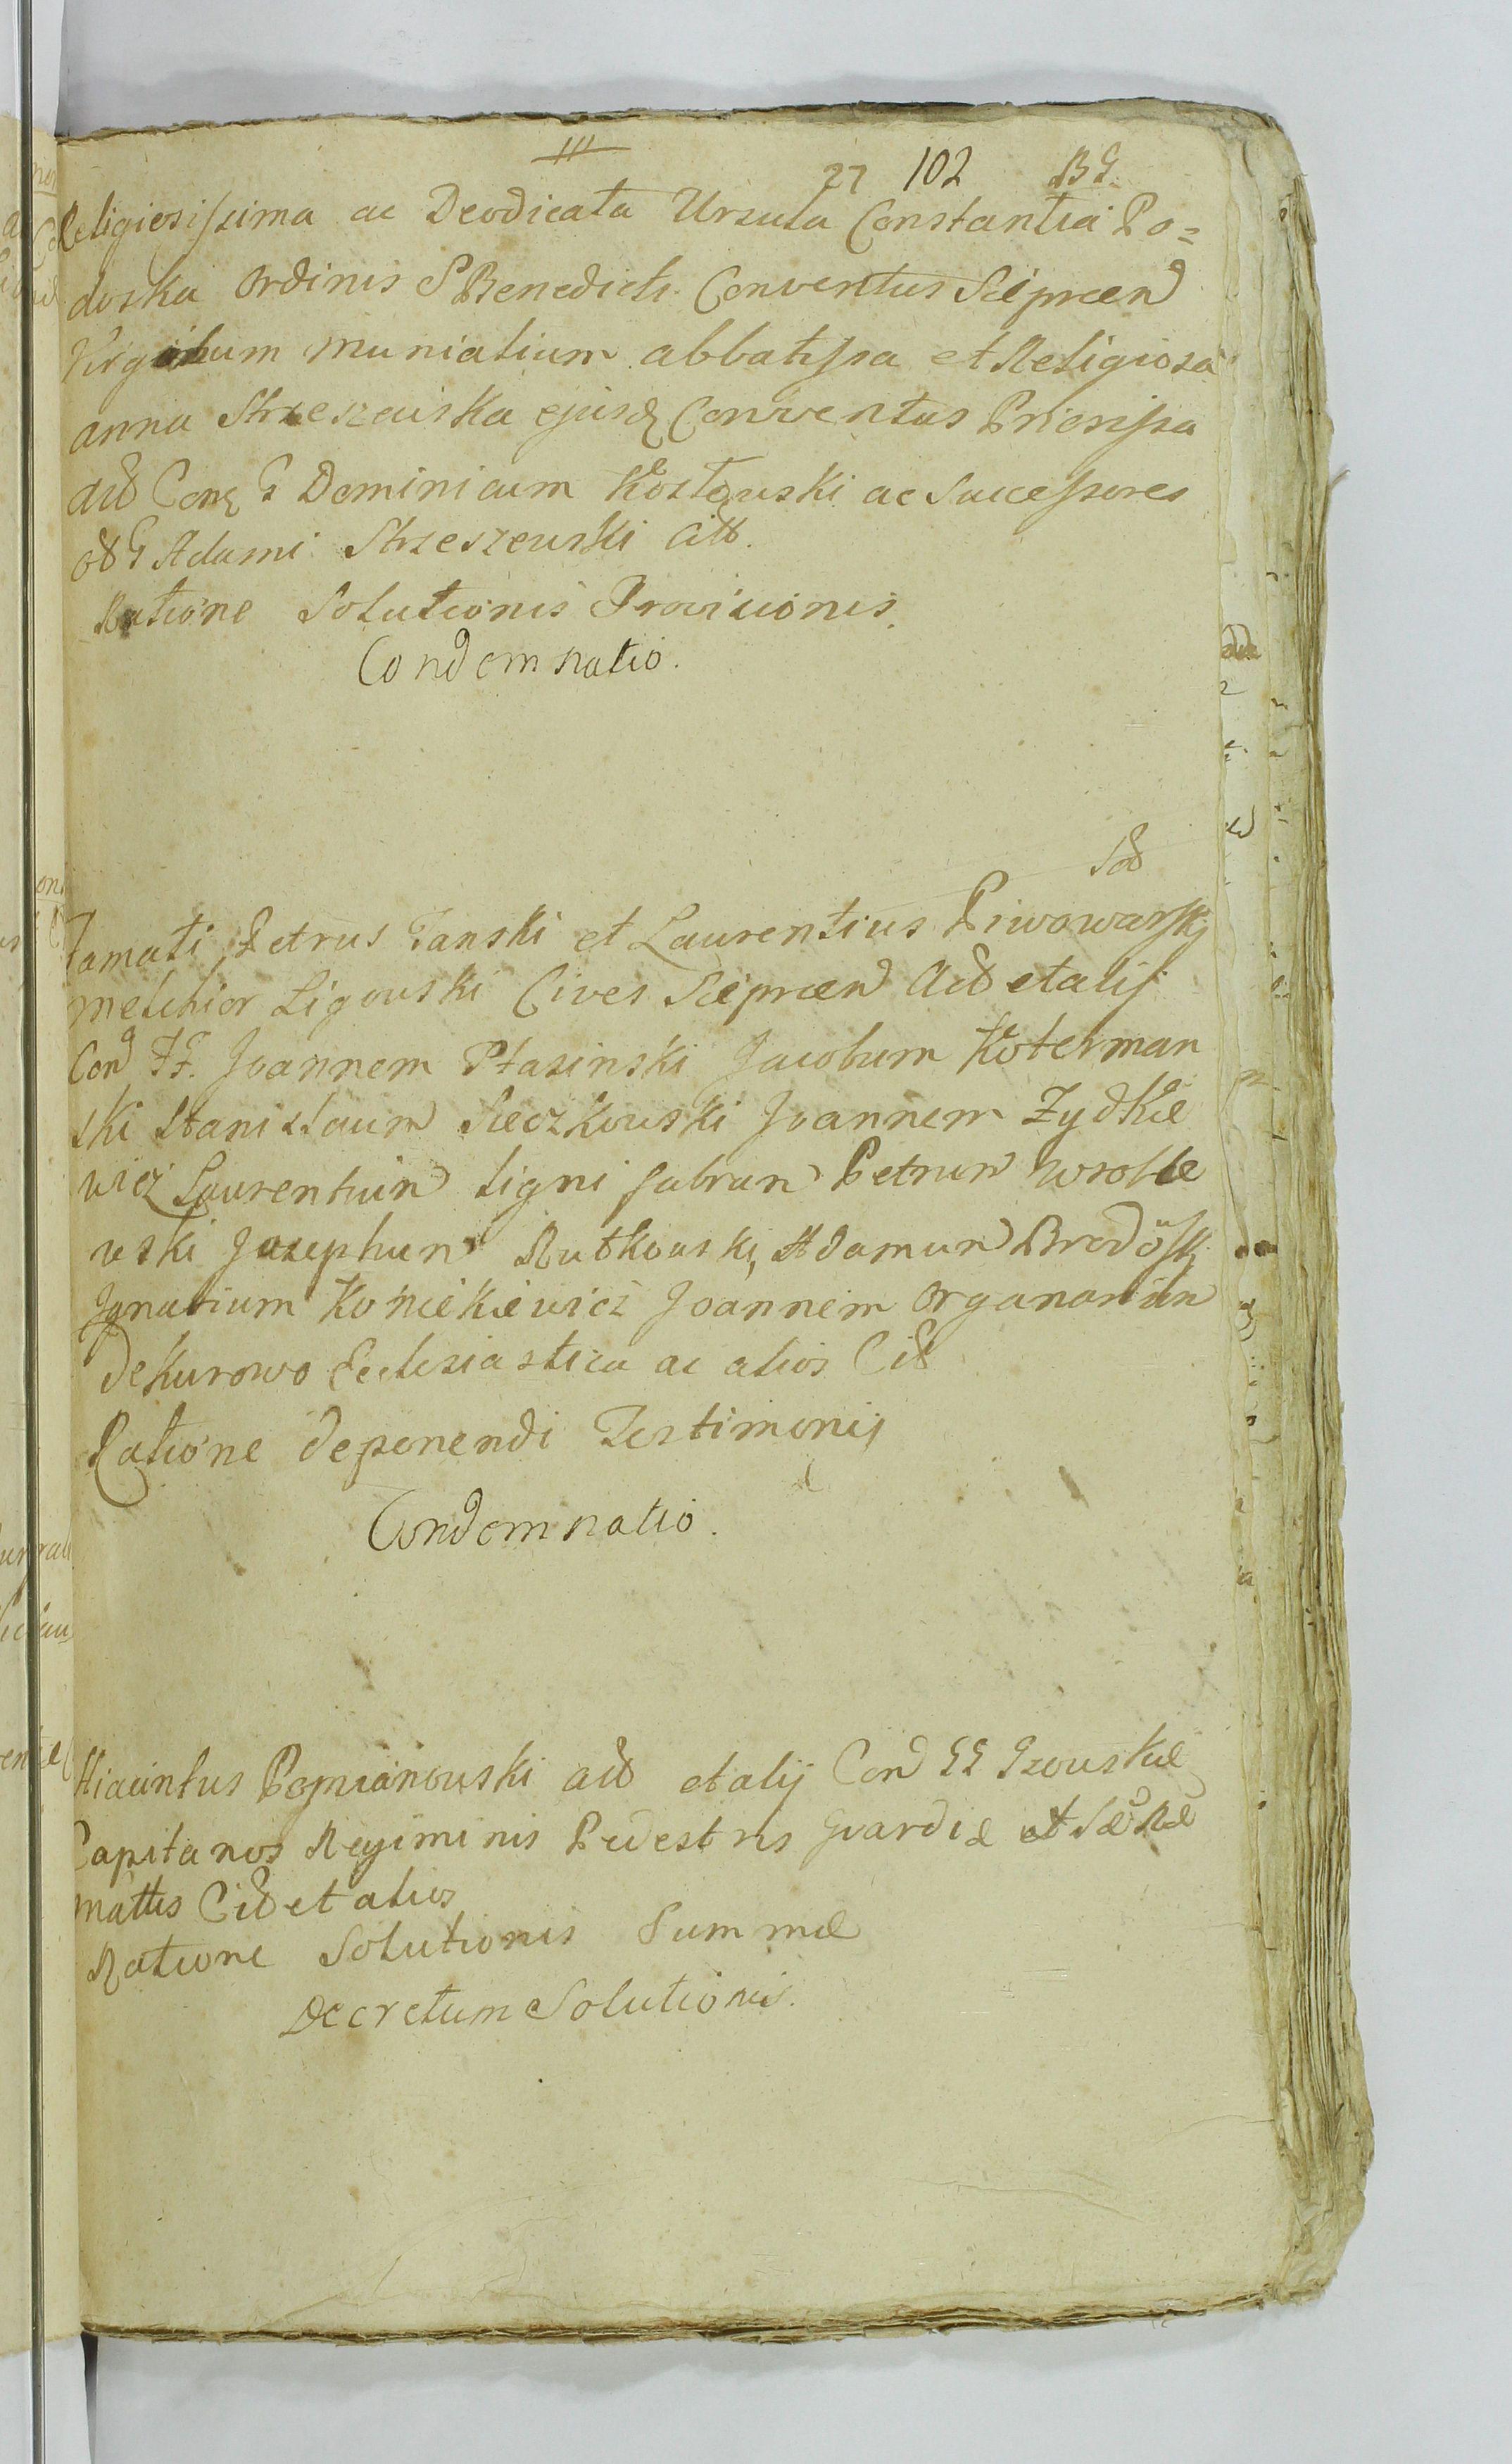 III
27 102 BG
Religiosissima ac Deodicata Ursula Constantia Po=
doska Ordinis S Benedicti Conventus Sieprcen
Virginum Munialium abbatissa et Religiosa
anna Strzeszewska ejusd Conventus Priorissa
Act Con G Dominicum Kozłowski ac Successores
ol G Adami Strzeszewski Citt.
Ratione Solutionis Provisionis.
Condemnatio.
Famati Petrus Tanski et Laurentius Piwowarski
Melchior Ligowski Cives Sieprcen Act et alij
Con FF. Joannem Ptasinski Jacobum Koterman
ski Stanislaum Sieczkowski Joannem Zydkie
wicz Laurentium ligni fabrum Petrum Wroble
wski Josephum Rutkowski, Adamum Brodowski
Ignatium Koniekiewicz Joannem Organarium
de Kurowo Ecclesiastica ac alios Cit
Ratione deponendi Testimonij
Condemnatio.
Hiacintus Pomianowski act et alij Con GG Gzowskie
Capitanos Regiminis Pedestris Gvardiæ
mattis Cit et alios
Ratione Solutionis Summæ
Decretum Solutionis.